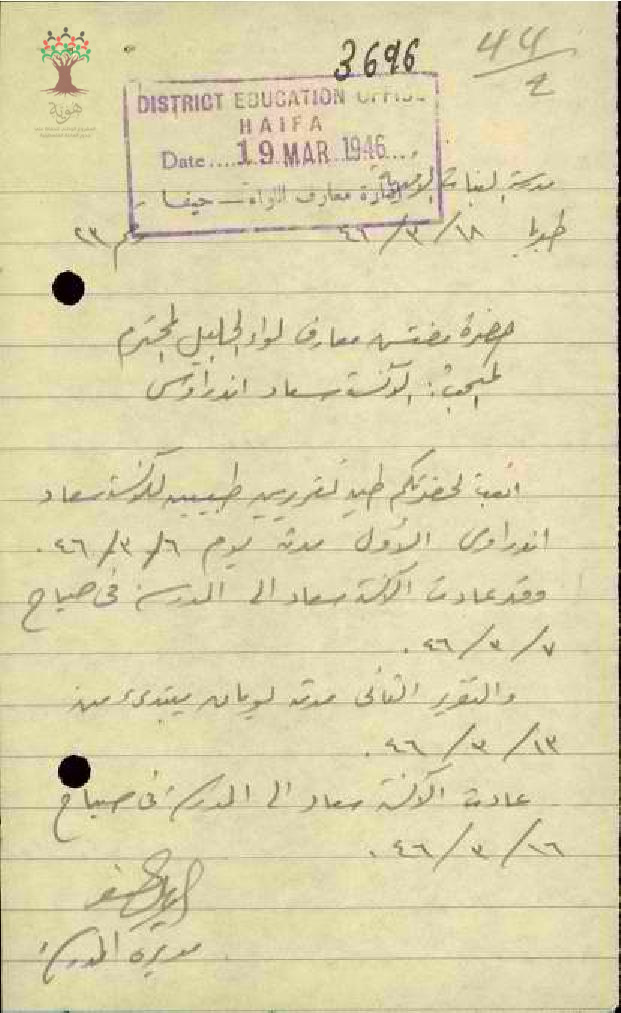 3696
44/2
هوية
DISTRICT EDUCATION OFFICE
HAIFA
Date.... 19 MAR 1946 ....
ادارة معارف اللواء ـ حيفا
مدرسة البنات الاميرية
١٨/٣/٤٦ رقم ٢٣
حضرة مفتش معارف لواء الجليل المحترم
المبحث: الآنسة سعاد اندراوس
ابعث لحضرتكم طيه تقريرين طبيين للآنسة سعاد
اندراوس الأول مدته يوم ٦/٣/٤٦.
وقد عادت الآنسة سعاد الى المدرسة في صباح
٧/٣/٤٦.
والتقرير الثاني مدته يومان يبتدىء من
١٣/٣/٤٦.
عادت الآنسة سعاد الى المدرسة في صباح
١٦/٣/٤٦.
مديرة المدرسة